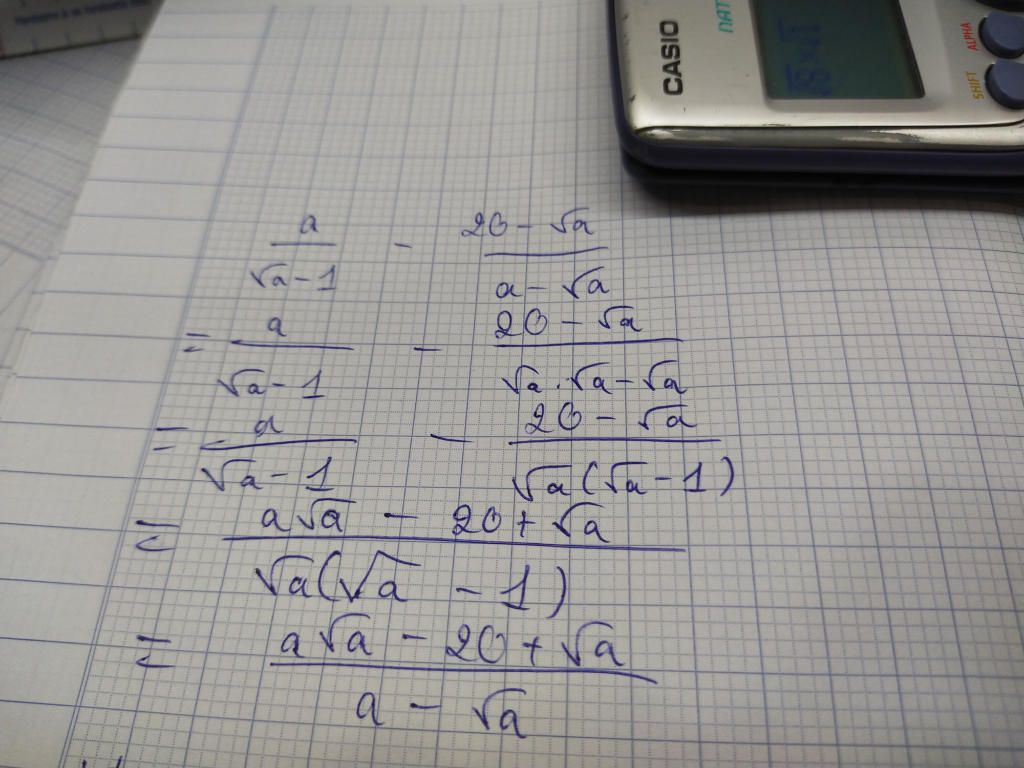 CASIO
NAT
ALPHA
SHIFT
a/(√a - 1) - (20 - √a)/(a - √a)
= a/(√a - 1) - (20 - √a)/(√a . √a - √a)
= a/(√a - 1) - (20 - √a)/(√a(√a - 1))
= (a√a - 20 + √a)/(√a(√a - 1))
= (a√a - 20 + √a)/(a - √a)